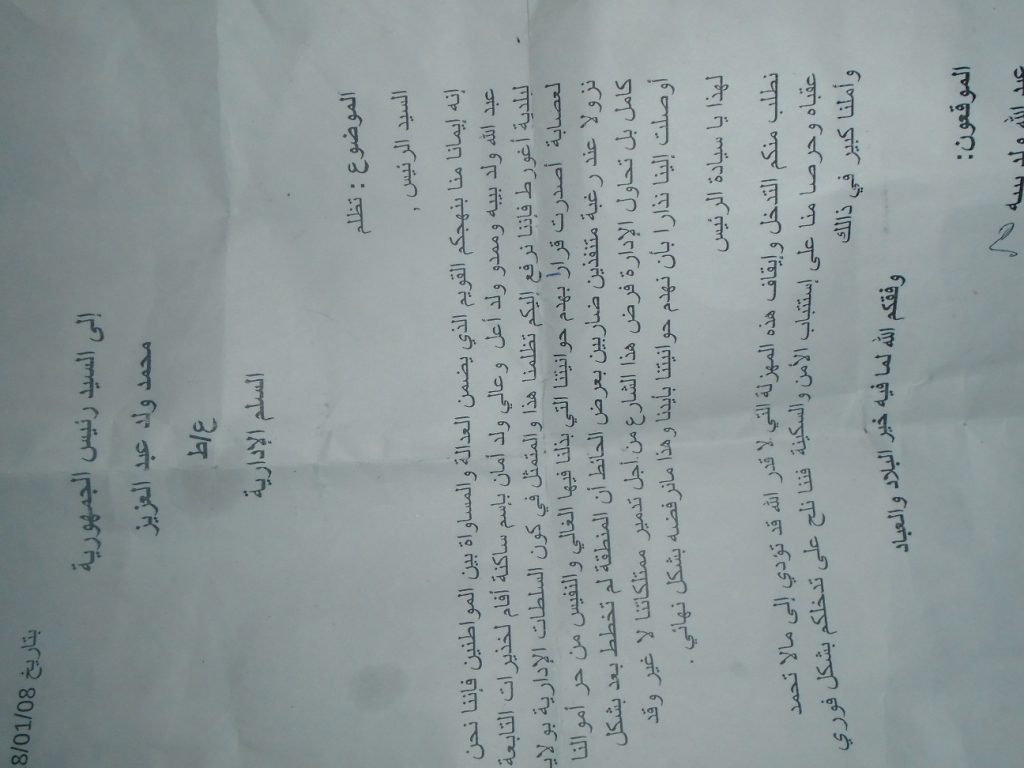 بتاريخ 8/01/08
إلى السيد رئيس الجمهورية
محمد ولد عبد العزيز
ع/ط
السلم الإدارية
الموضوع : تظلم
السيد الرئيس ,
إنه إيمانا منا بنهجكم القويم الذي يضمن العدالة والمساواة بين المواطنين فإننا نحن
عبد الله ولد بيبه وممدو ولد أعل وعالي ولد أمان بإسم ساكنة أفام لخذيرات التابعة
لبلدية أغورط فإننا نرفع إليكم تظلمنا هذا والمتمثل في كون السلطات الإدارية بولاية
لعصابة أصدرت قرارا بهدم حوانيتنا التي بذلنا فيها الغالي والنفيس من حر أموالنا
نزولا عند رغبة متنفذين ضاربين بعرض الحائط ان المنطقة لم تخطط بعد بشكل
كامل بل تحاول الإدارة فرض هذا الشارع من أجل تدمير ممتلكاتنا لا غير وقد
أوصلت إلينا نذارا بأن نهدم حوانيتنا بأيدنا وهذا مانرفضه بشكل نهائي .
لهذا يا سيادة الرئيس
نطلب منكم التدخل وإيقاف هذه المهزلة التي لا قدر الله قد تؤدي إلى مالا تحمد
عقباه وحرصا منا على إستتباب الأمن والسكينة فننا نلح على تدخلكم بشكل فوري
وأملنا كبير في ذالك
وفقكم الله لما فيه خير البلاد والعباد
الموقعون:
عبد الله ولد بيبه